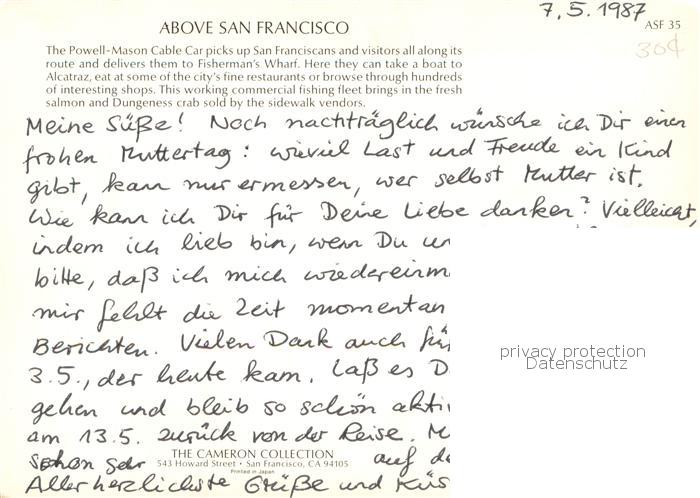 7.5.1987
ABOVE SAN FRANCISCO
ASF 35
30¢
The Powell-Mason Cable Car picks up San Franciscans and visitors all along its
route and delivers them to Fisherman's Wharf. Here they can take a boat to
Alcatraz, eat at some of the city's fine restaurants or browse through hundreds
of interesting shops. This working commercial fishing fleet brings in the fresh
salmon and Dungeness crab sold by the sidewalk vendors.
Meine Süße! Noch nachträglich wünsche ich Dir einen
frohen Muttertag: wieviel Last und Freude ein Kind
gibt, kann nur ermessen, wer selbst Mutter ist.
Wie kann ich Dir für Deine Liebe danken? Vielleicht,
indem ich lieb bin, wenn Du un
bitte, daß ich mich wiedereinm
mir fehlt die Zeit momentan
Berichten. Vielen Dank auch für
3.5., der heute kam. Laß es D
gehen und bleib so schön akti
am 13.5. zurück von der Reise. M
schon sehr auf d
Allerherzlichste Grüße und Küs
THE CAMERON COLLECTION
543 Howard Street • San Francisco, CA 94105
Printed in Japan
privacy protection
Datenschutz